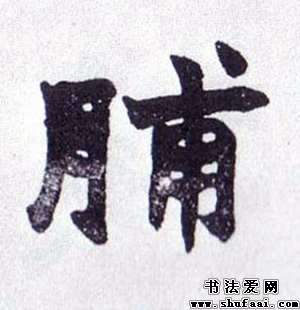 脯
书法爱网
www.shufaai.com